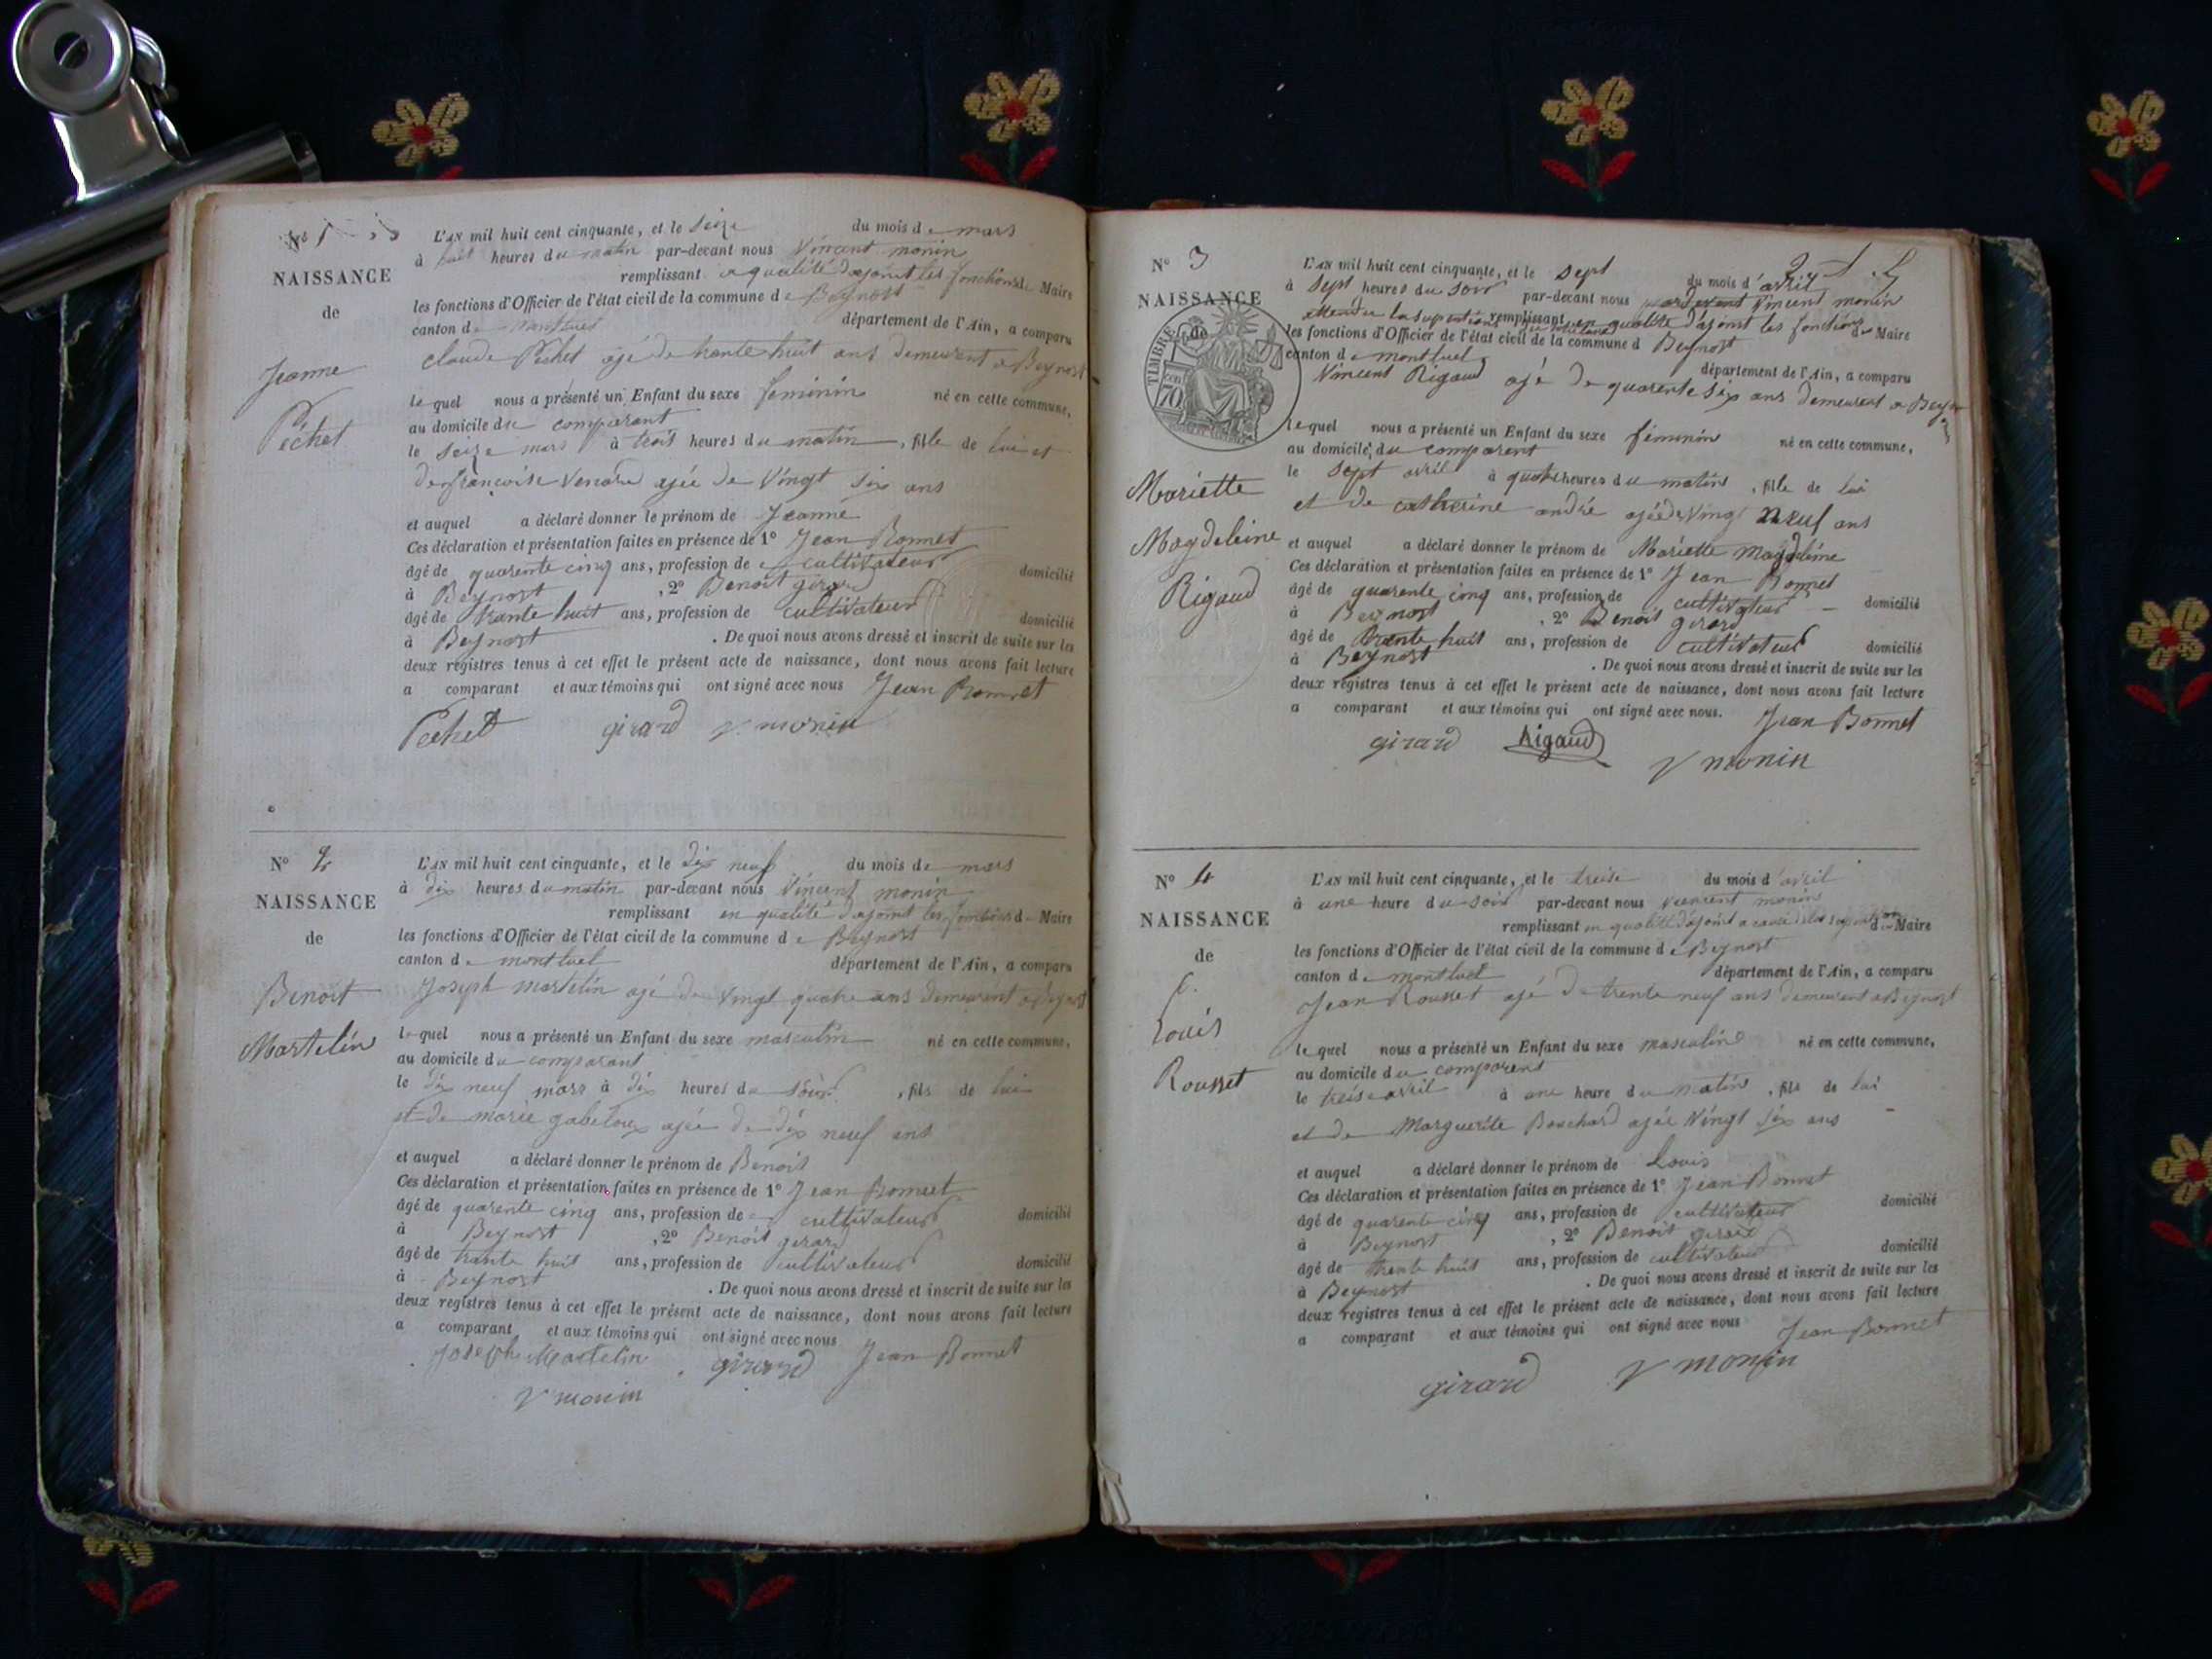 N° 1
NAISSANCE
de
Jeanne
Pêchet
L'AN mil huit cent cinquante, et le seize du mois de mars
à huit heures du matin par-devant nous Vincent monin
remplissant en qualité d'ajoint les fonctions de Maire
les fonctions d'Officier de l'état civil de la commune de Beynost
canton de montluel département de l'Ain, a comparu
claude Pêchet ajé de trante huit ans demeurent a Beynost
lequel nous a présenté un Enfant du sexe feminin né en cette commune,
au domicile du comparant
le seize mars à trois heures du matin, fille de lui et
de françoise ajée de Vingt six ans
et auquel a déclaré donner le prénom de Jeanne
Ces déclaration et présentation faites en présence de 1° Jean Bonnet
âgé de quarente cinq ans, profession de cultivateur domicilié
à Beynost, 2° Benoit girard
âgé de trante huit ans, profession de cultivateur domicilié
à Beynost. De quoi nous avons dressé et inscrit de suite sur les
deux registres tenus à cet effet le présent acte de naissance, dont nous avons fait lecture
a comparant et aux témoins qui ont signé avec nous Jean Bonnet
Pechet girard v monin
N° 2
NAISSANCE
de
Benoit
Martelin
L'AN mil huit cent cinquante, et le dix neuf du mois de mars
à dix heures du matin par-devant nous Vincent monin
remplissant en qualité d'ajoint les fonctions de Maire
les fonctions d'Officier de l'état civil de la commune de Beynost
canton de montluel département de l'Ain, a comparu
Joseph martelin ajé de Vingt quatre ans demeurent a Beynost
lequel nous a présenté un Enfant du sexe masculin né en cette commune,
au domicile du comparant
le dix neuf mars à dix heures du soir, fils de lui
et de marie gabeloux ajée de dix neuf ans
et auquel a déclaré donner le prénom de Benoit
Ces déclaration et présentation faites en présence de 1° Jean Bonnet
âgé de quarente cinq ans, profession de cultivateur domicilié
à Beynost, 2° Benoit girard
âgé de trante huit ans, profession de cultivateur domicilié
à Beynost. De quoi nous avons dressé et inscrit de suite sur les
deux registres tenus à cet effet le présent acte de naissance, dont nous avons fait lecture
a comparant et aux témoins qui ont signé avec nous
Joseph Martelin girard Jean Bonnet
v monin
N° 3
NAISSANCE
de
TIMBRE
70
Mariette
Magdeleine
Rigaud
L'AN mil huit cent cinquante, et le sept du mois d'avril
à sept heures du soir par-devant nous Vincent monin
remplissant en qualité d'ajoint les fonctions de Maire
les fonctions d'Officier de l'état civil de la commune d Beynost
canton de montluel département de l'Ain, a comparu
Vincent Rigaud ajé de quarente six ans demeurent a Beynost
lequel nous a présenté un Enfant du sexe féminin né en cette commune,
au domicile du comparent
le sept avril à quatre heures du matin, fille de lui
et de catherine andré ajée de Vingt neuf ans
et auquel a déclaré donner le prénom de Mariette magdeleine
Ces déclaration et présentation faites en présence de 1° Jean Bonnet
âgé de quarente cinq ans, profession de cultivateur domicilié
à Beynost, 2° Benoit girard
âgé de trante huit ans, profession de cultivateur domicilié
à Beynost. De quoi nous avons dressé et inscrit de suite sur les
deux registres tenus à cet effet le présent acte de naissance, dont nous avons fait lecture
a comparant et aux témoins qui ont signé avec nous. Jean Bonnet
girard Rigaud
v monin
N° 4
NAISSANCE
de
Louis
Rousset
L'AN mil huit cent cinquante, et le treise du mois d'avril
à une heure du soir par-devant nous vincent monin
remplissant en qualité d'ajoint a cause de la de Maire
les fonctions d'Officier de l'état civil de la commune de Beynost
canton de montluel département de l'Ain, a comparu
Jean Rousset ajé de trente neuf ans demeurent a Beynost
lequel nous a présenté un Enfant du sexe masculin né en cette commune,
au domicile du comparent
le treise avril à une heure du matin, fils de lui
et de Marguerite Bouchard ajée Vingt six ans
et auquel a déclaré donner le prénom de Louis
Ces déclaration et présentation faites en présence de 1° Jean Bonnet
âgé de quarente cinq ans, profession de cultivateur domicilié
à Beynost, 2° Benoit girard
âgé de trente huit ans, profession de cultivateur domicilié
à Beynost. De quoi nous avons dressé et inscrit de suite sur les
deux registres tenus à cet effet le présent acte de naissance, dont nous avons fait lecture
a comparant et aux témoins qui ont signé avec nous Jean Bonnet
girard v monin